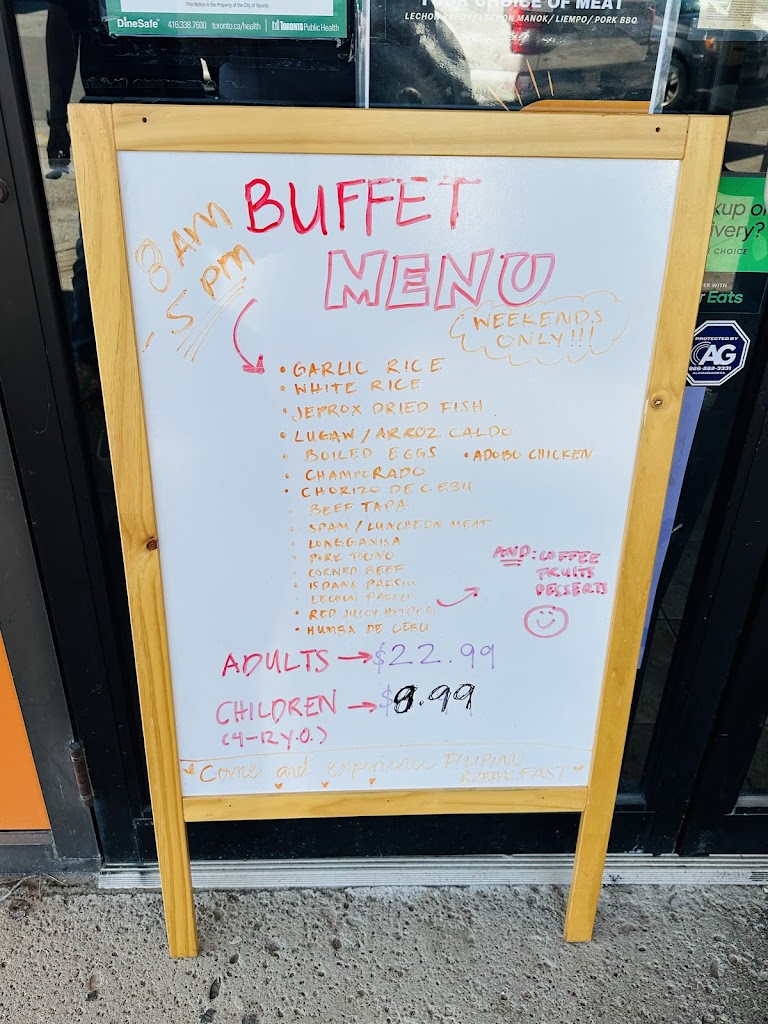 This Notice is the Property of the City of Toronto
DineSafe 416.338.7600 toronto.ca/health TORONTO Public Health
YOUR CHOICE OF MEAT
LECHON BABOY/LECHON MANOK/ LIEMPO/ PORK BBQ
BUFFET
MENU
8 AM
- 5 PM
WEEKENDS
ONLY!!!
• GARLIC RICE
• WHITE RICE
• JEPROX DRIED FISH
• LUGAW / ARROZ CALDO
• BOILED EGGS • ADOBO CHICKEN
• CHAMPORADO
• CHORIZO DE CEBU
• BEEF TAPA
• SPAM / LUNCHEON MEAT
• LONGGANISA
• PORK TOCINO
• CORNED BEEF
• ISDANG PAKSIW
• LECHON PAKSIW
• RED JUICY HOTDOG
• HUMBA DE CEBU
AND: COFFEE
FRUITS
DESSERTS
ADULTS → $22.99
CHILDREN → $8.99
(4-12 Y.O.)
Come and experience FILIPINO
BREAKFAST
kup or
ivery?
R CHOICE
ER WITH
r Eats
PROTECTED BY
AG